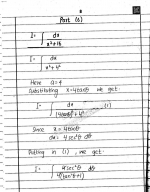 Part (c)
I = ∫ dx
x²+16
I = ∫ dx
x²+4²
Here a=4
Substituting x=4tanθ we get
I = ∫ dx
(4tanθ)²+4²
Since x = 4tanθ
dx = 4sec²θ dθ
Putting in (1), we get
I = ∫ 4sec²θ dθ
4²(tan²θ+1)